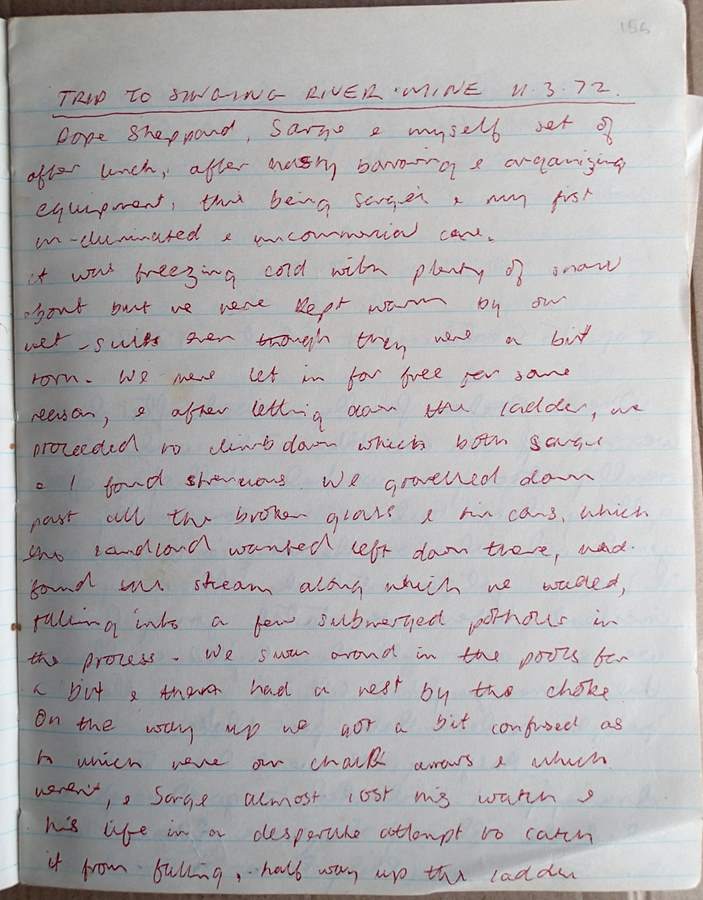 156
TRIP TO SINGING RIVER MINE 11.3.72.
Pope Sheppard, Sarge & myself set of
after lunch, after hasty borrowing & organizing
equipment, this being Sarge's & my first
un-iluminated & uncommercial cave.
it was freezing cold with plenty of snow
about but we were kept warm by our
wet-suits even though they were a bit
torn. We were let in for free for some
reason, & after letting down the ladder, we
proceeded to climb down which both Sarge
& I found strenuous. We grovelled down
past all the broken glass & tin cans, which
the landlord wanted left down there, and
found the stream along which we waded,
falling into a few submerged potholes in
the process. We swam around in the pools for
a bit & then had a rest by the choke
On the way up we got a bit confused as
to which were our chalk arrows & which
weren't, & Sarge almost lost his watch &
his life in a desperate attempt to catch
it from falling, half way up the ladder